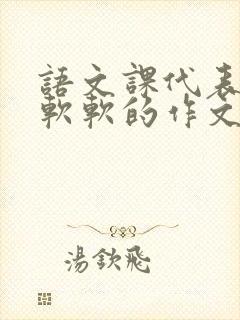 語文課代表
軟軟的作文
湯欽飛